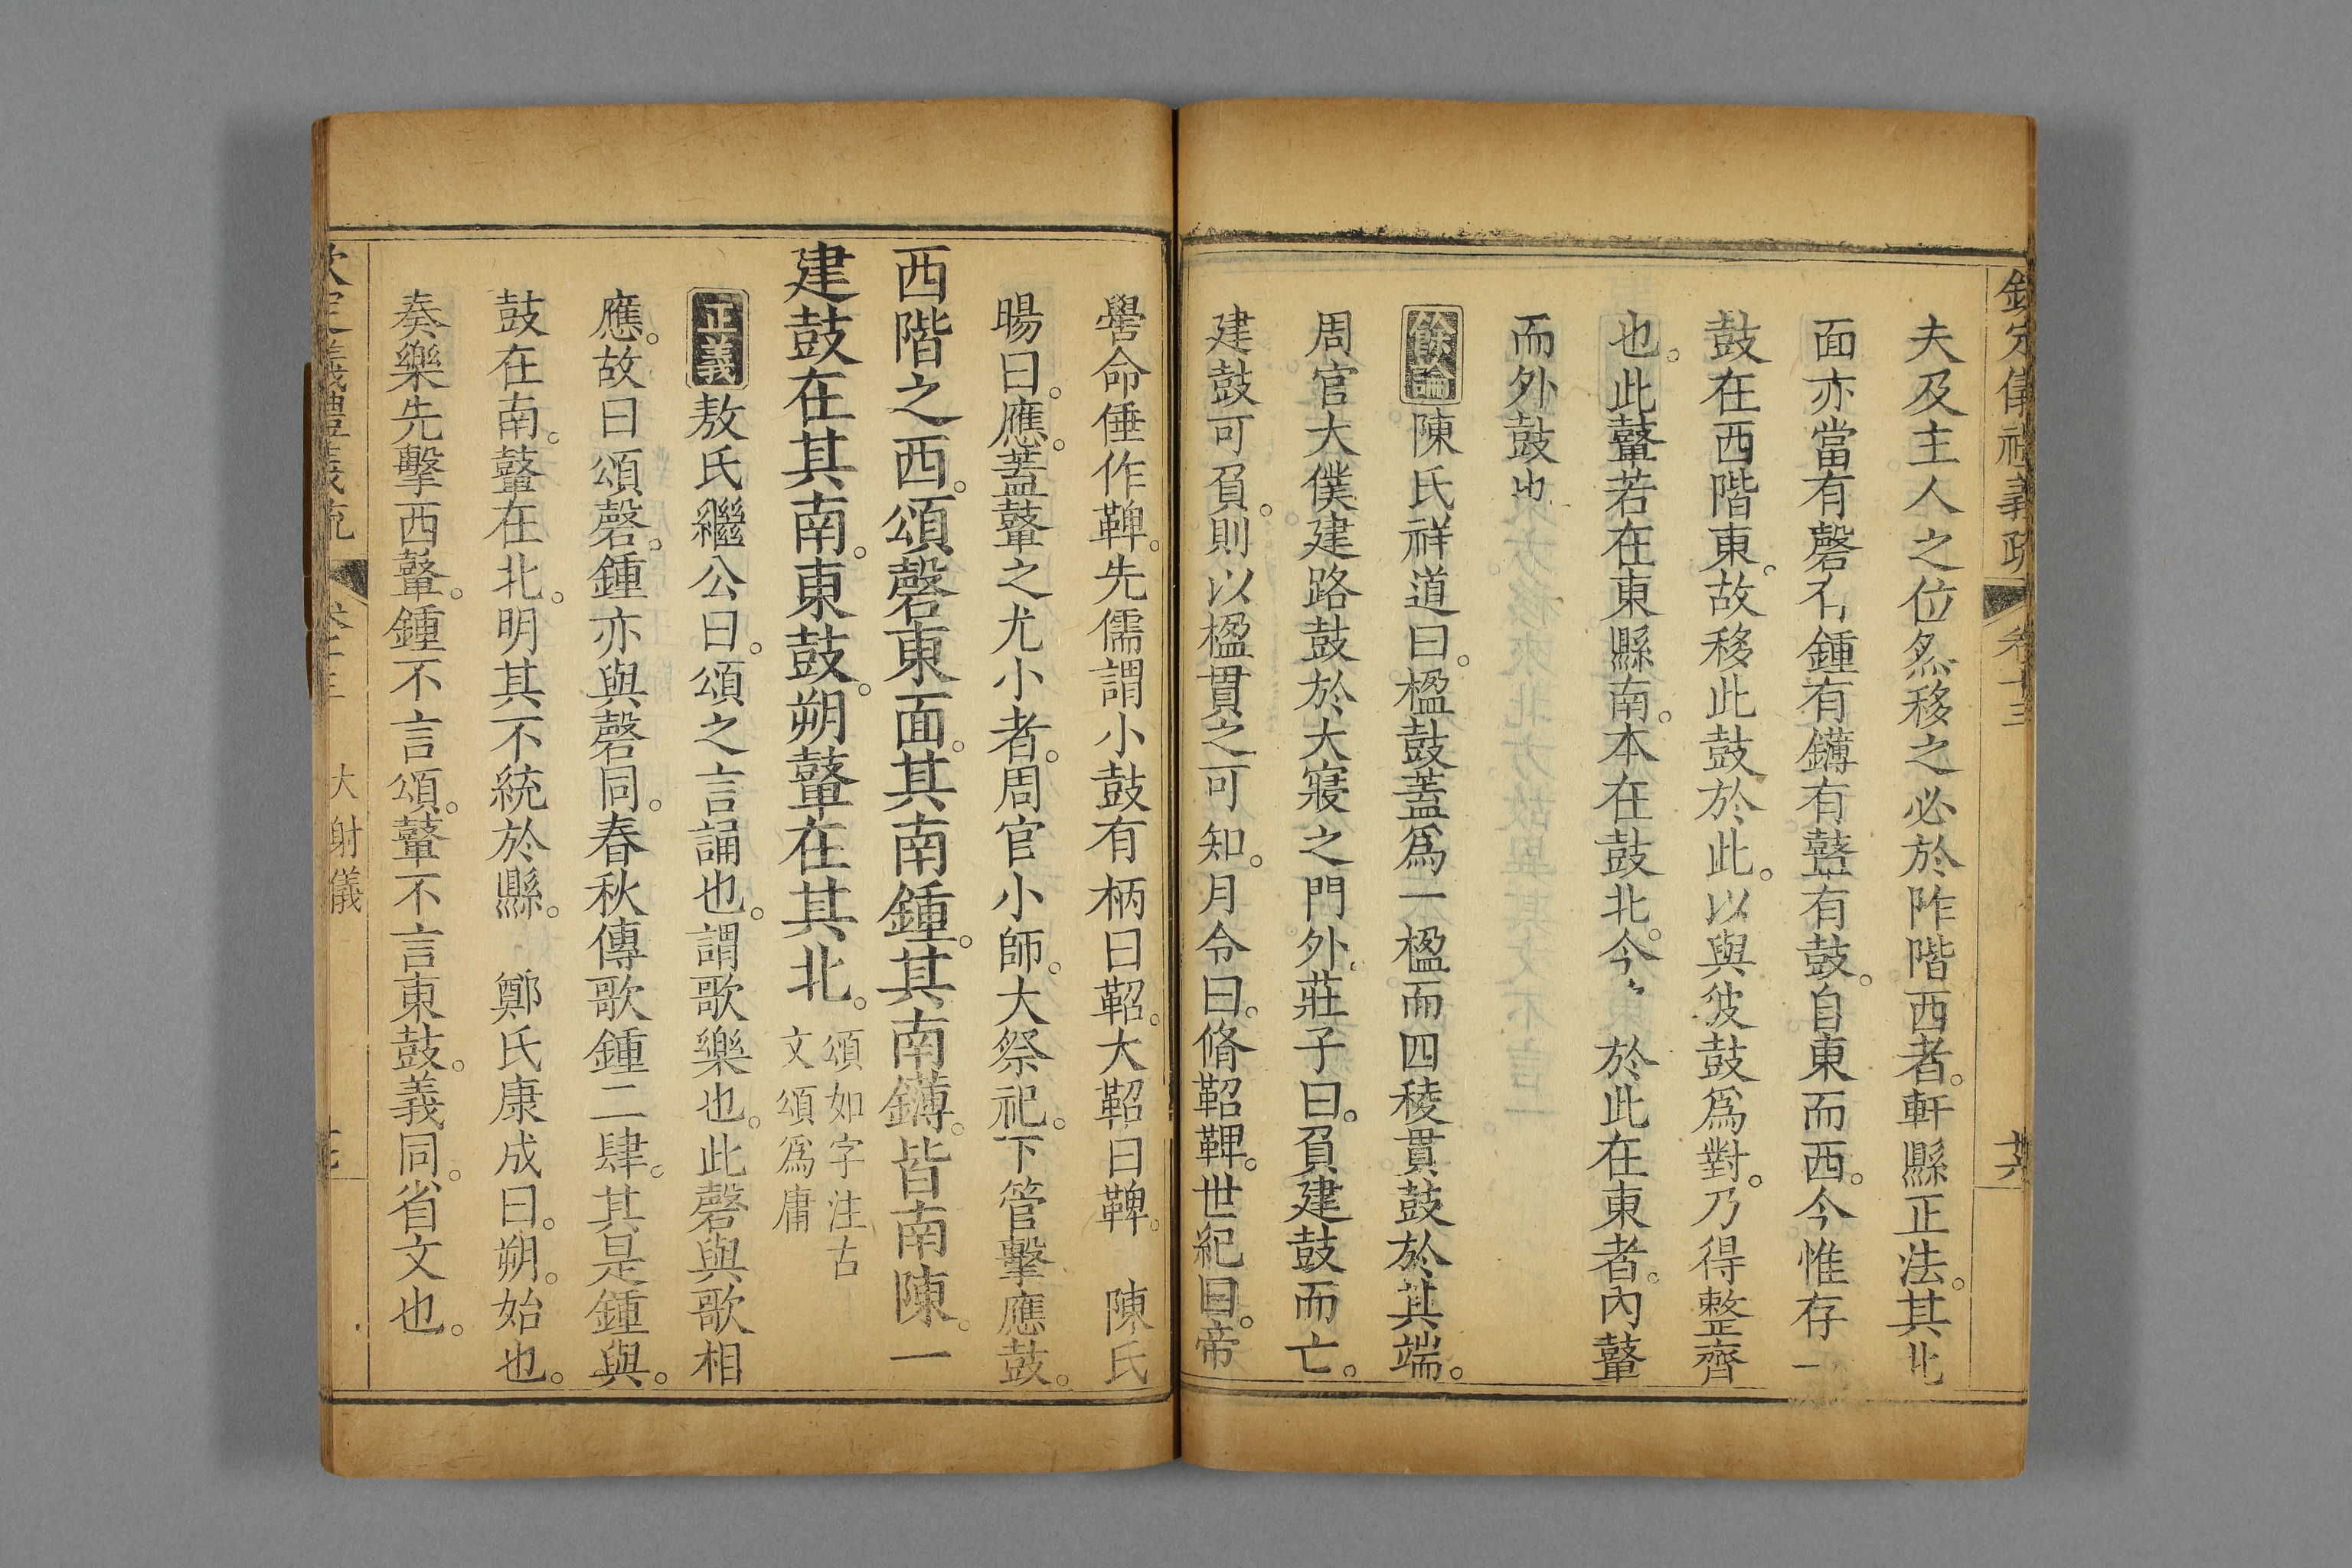 欽定儀禮義疏 卷十三 共
夫及主人之位然移之必於阼階西者。軒縣正法。其北
面亦當有磬有鍾有鑮有鼗有鼓。自東而西。今惟存一
鼓在西階東。故移此鼓於此。以與彼鼓爲對。乃得整齊
也。此鼙若在東縣南。本在鼓北。今 於此在東者。內鼙
而外鼓也
餘論 陳氏祥道曰。楹鼓蓋爲一楹而四稜貫鼓於其端。
周官大僕建路鼓於大寢之門外。莊子曰。負建鼓而亡。
建鼓可負。則以楹貫之可知。月令曰。脩鞀鞞。世紀曰。帝
嚳命倕作鞞。先儒謂小鼓有柄曰鞀。大鞀曰鞞。 陳氏
暘曰。應。蓋鼙之尤小者。周官小師。大祭祀。下管擊應鼓。
西階之西。頌磬東面。其南鍾。其南鑮。皆南陳。一
建鼓在其南。東鼓。朔鼙在其北。頌如字注古
文頌爲庸
正義 敖氏繼公曰。頌之言誦也。謂歌樂也。此磬與歌相
應。故曰頌磬。鍾亦與磬同。春秋傳歌鍾二肆。其是鍾與。
鼓在南。鼙在北。明其不統於縣。 鄭氏康成曰。朔。始也。
奏樂先擊西鼙。鍾不言頌。鼙不言東鼓。義同。省文也。
大射儀